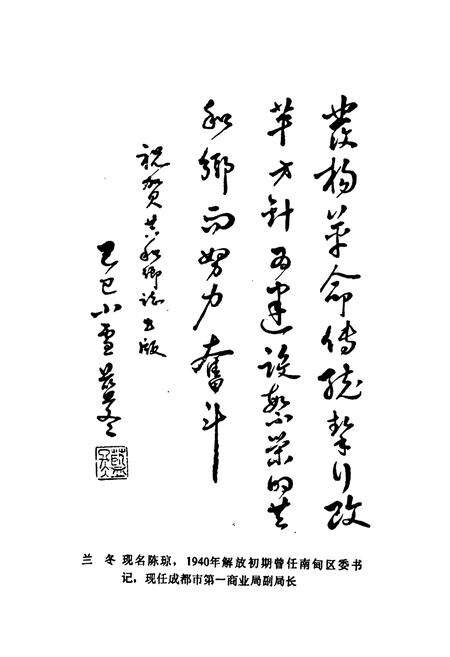 發扬革命传统挚行改
革方针为建设繁荣的共
和乡而努力奋斗
祝贺共和乡志出版
己巳小雪兰冬
兰　冬　现名陈琼，1940年解放初期曾任南甸区委书
记，现任成都市第一商业局副局长